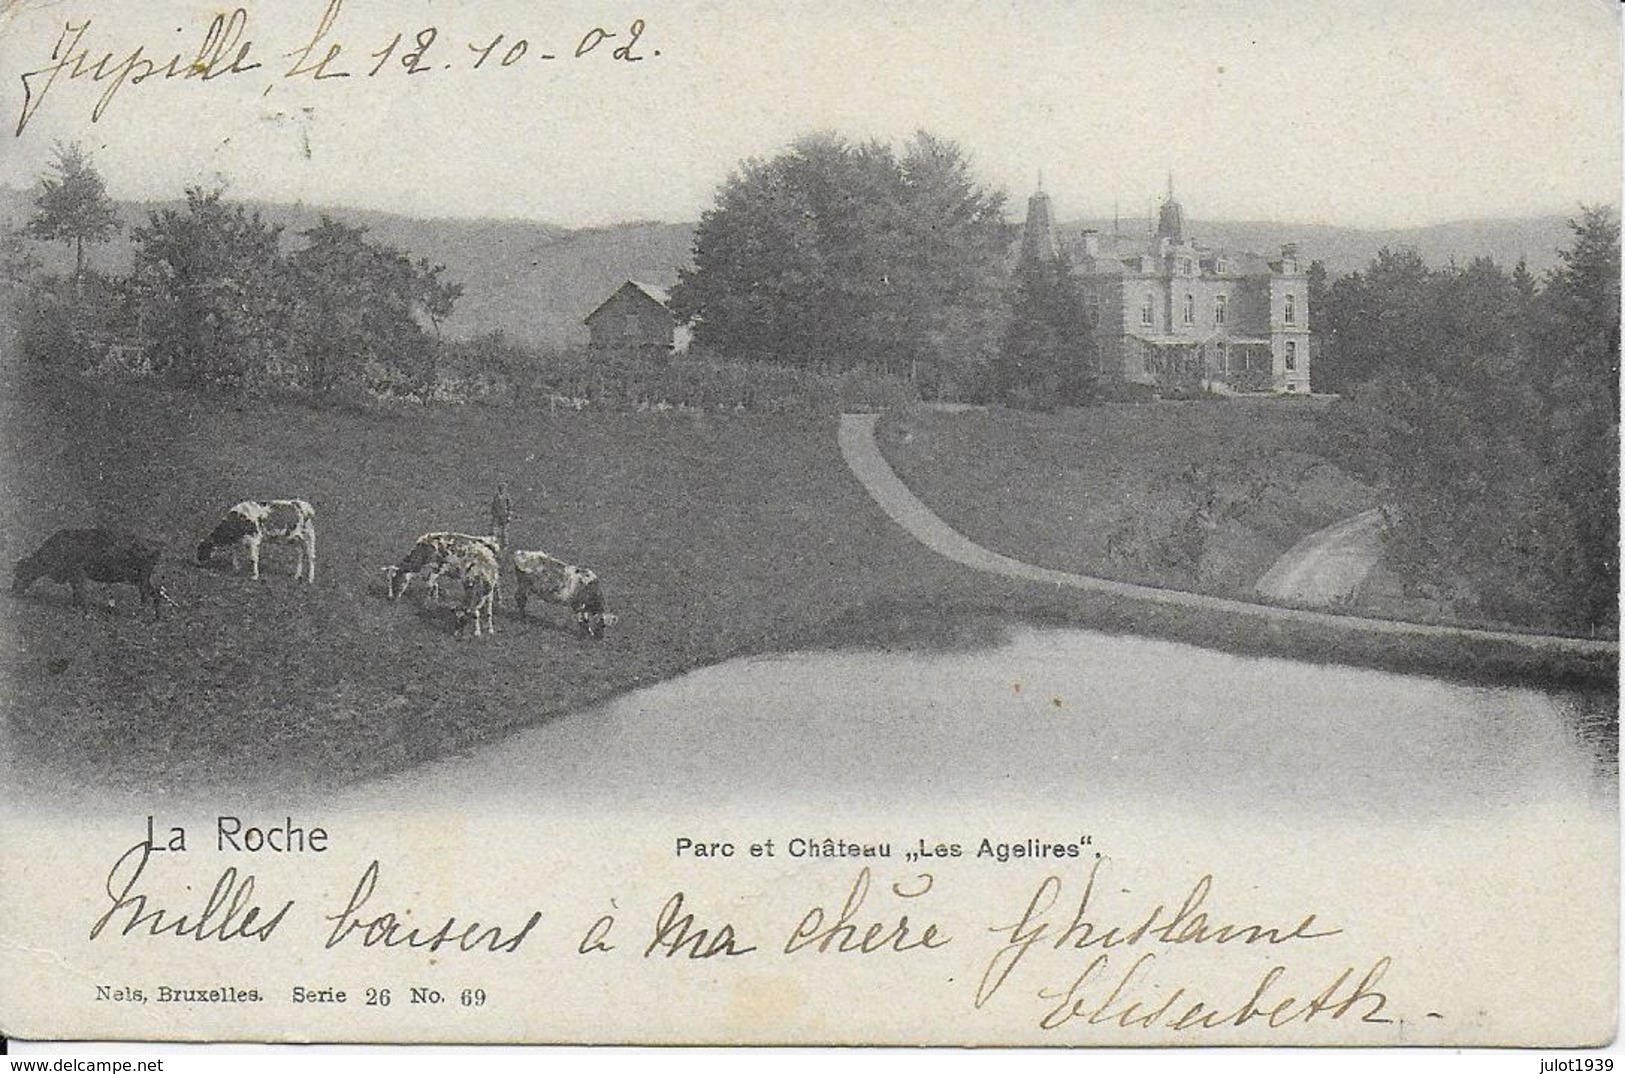 Jupille, le 12.10-02.
La Roche
Parc et Château „Les Agelires“.
Milles baisers à Ma chère Ghislaine
Elisabeth -
Nels, Bruxelles. Serie 26 No. 69
delcampe.net
julot1939